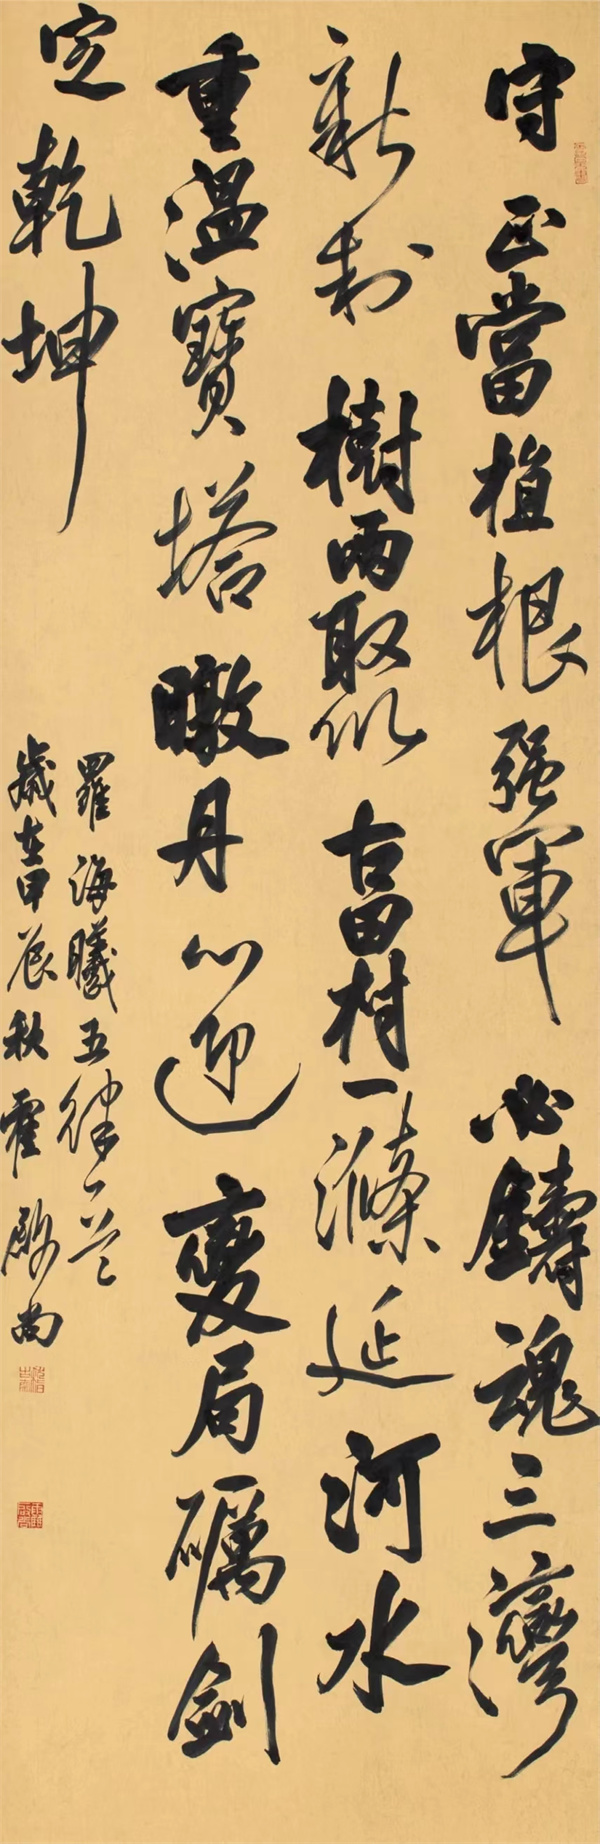 守正當植根强軍必鑄魂三灣
新制樹兩聚古田村一滌延河水
重溫寶塔暾丹心迎變局礪劍
定乾坤
羅海曦五律一首
歲在甲辰秋霍尚